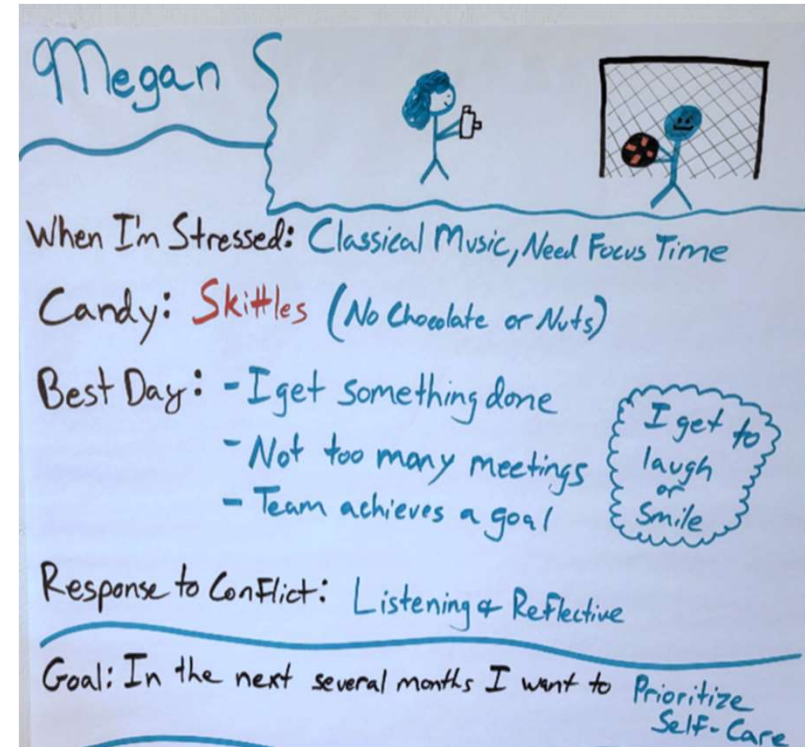 Megan
When I'm Stressed: Classical Music, Need Focus Time
Candy: Skittles (No Chocolate or Nuts)
Best Day: - I get something done
- Not too many meetings
- Team achieves a goal
I get to
laugh
or
Smile
Response to Conflict: Listening & Reflective
Goal: In the next several months I want to Prioritize
Self-Care